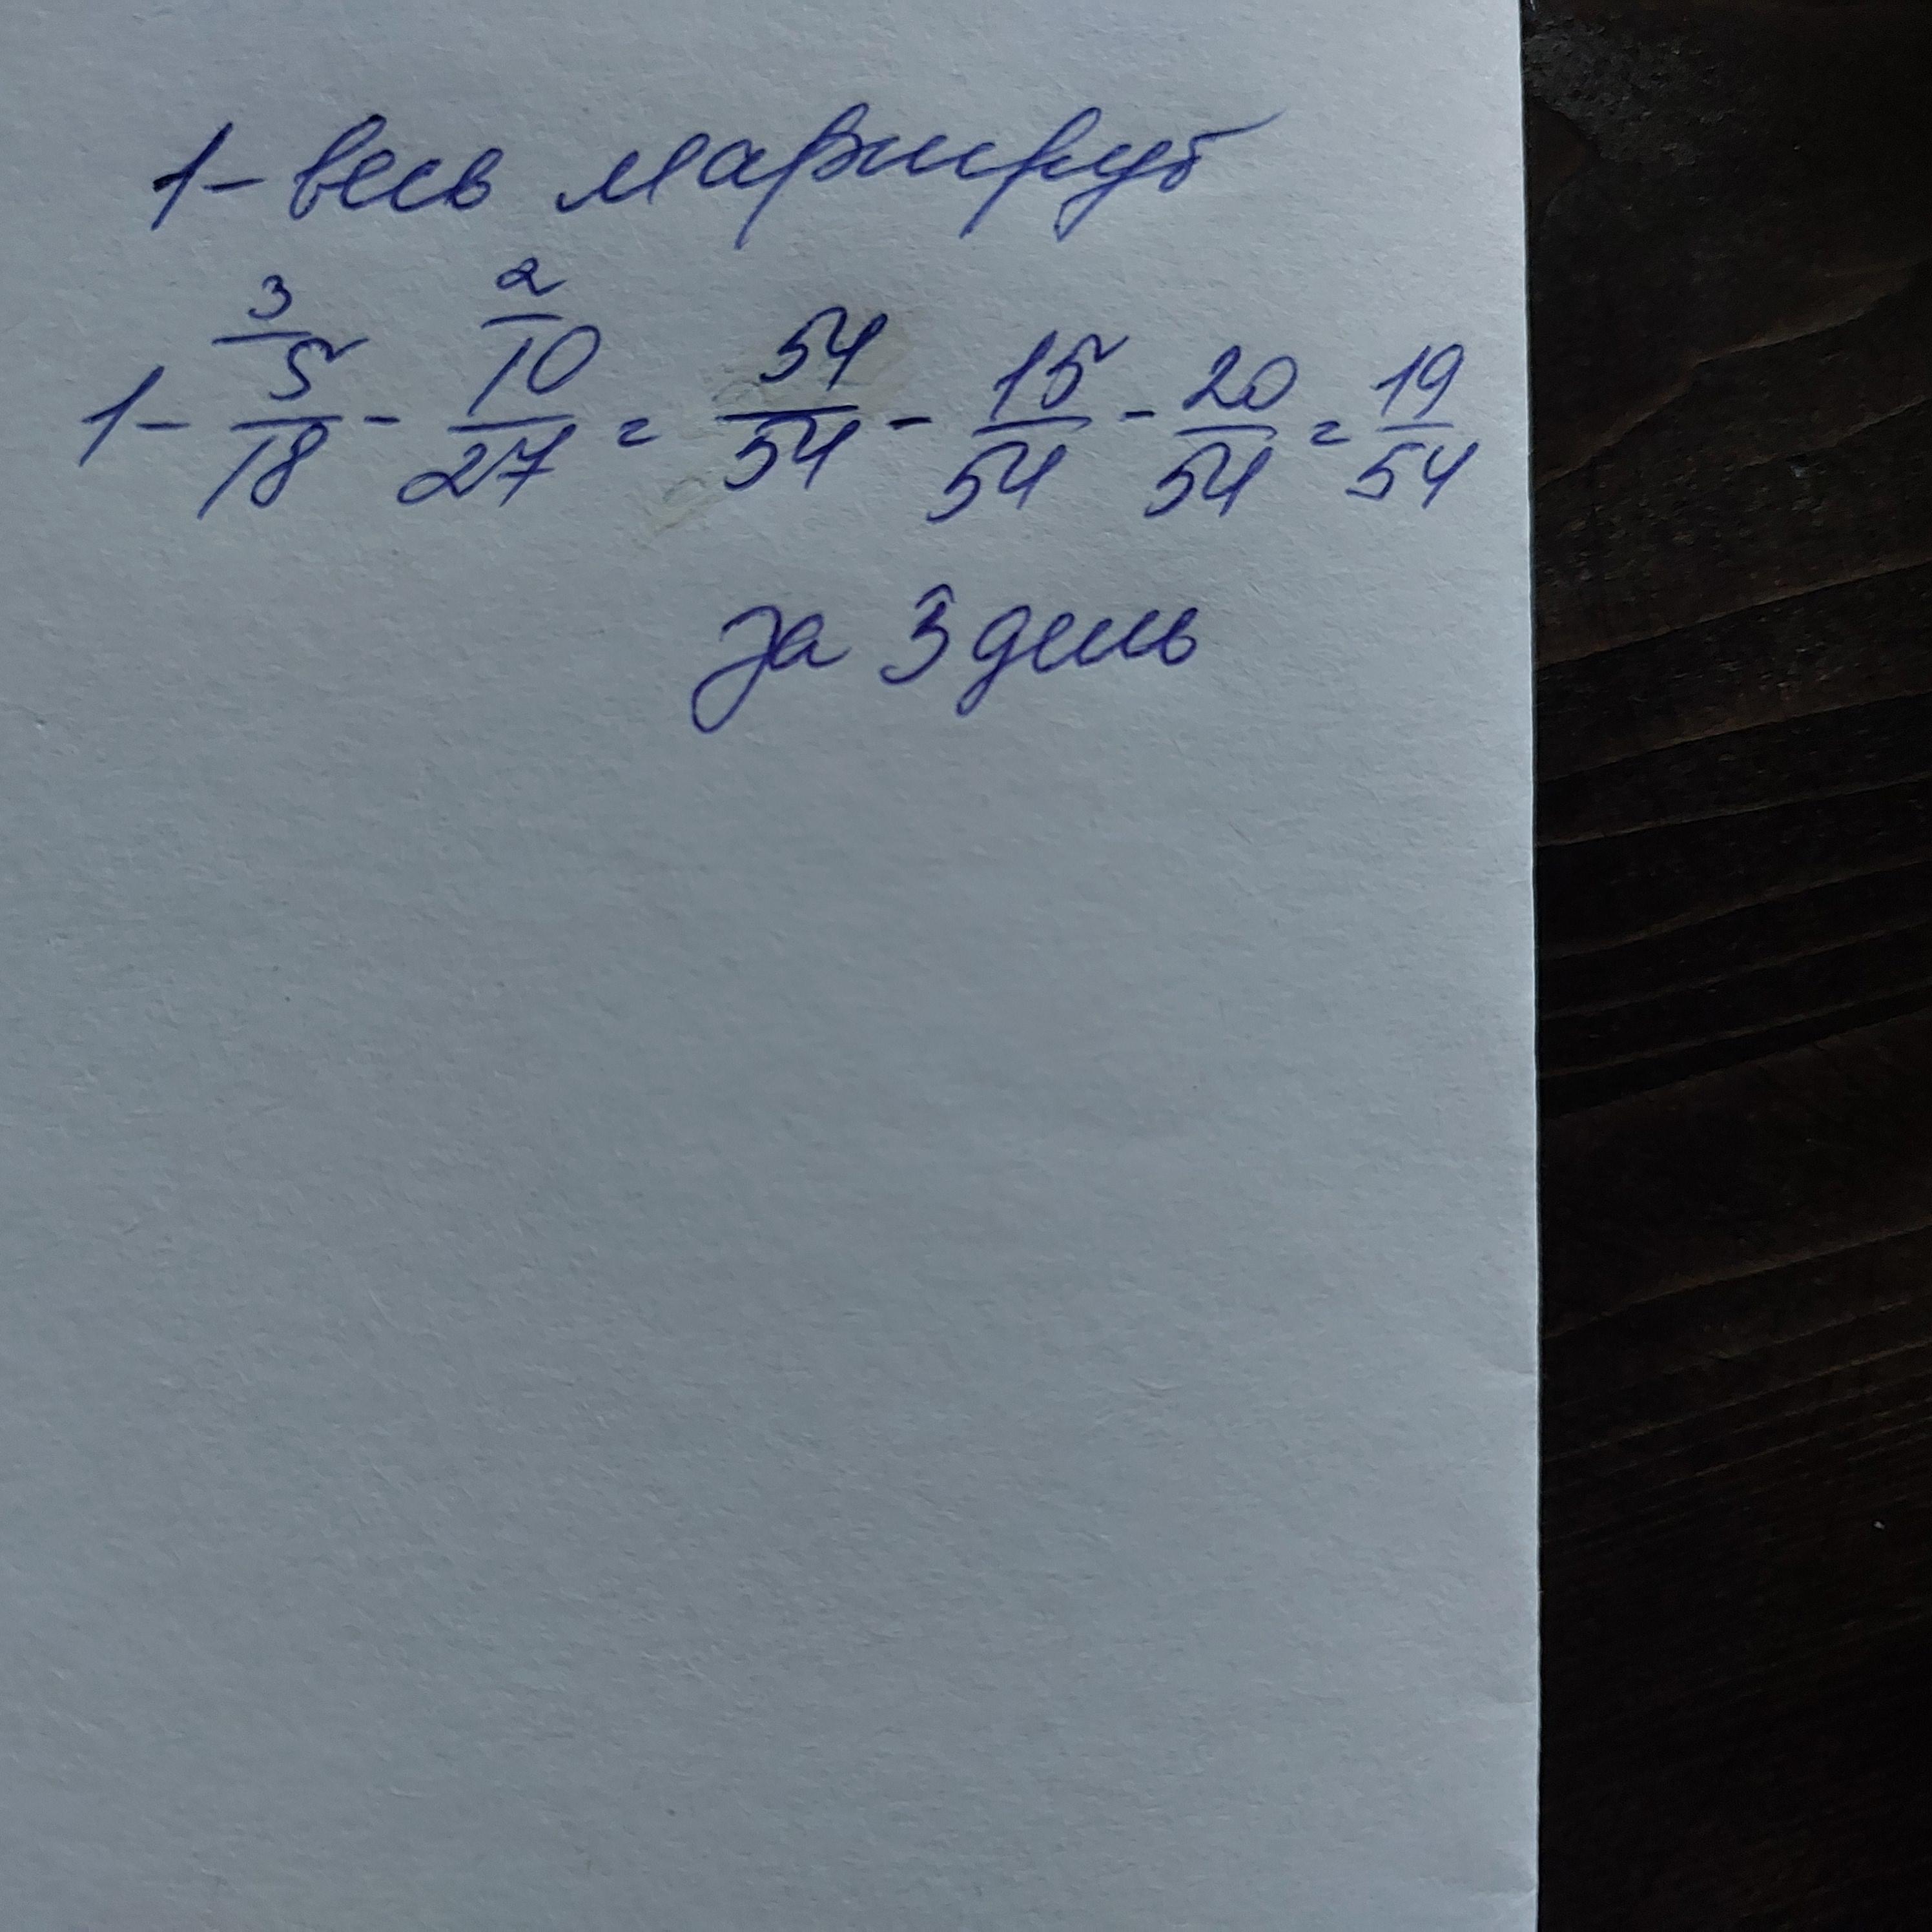 1 - весь маршрут
1 - 3/5/18 - 2/10/27 = 54/54 - 15/54 - 20/54 = 19/54
за 3 день